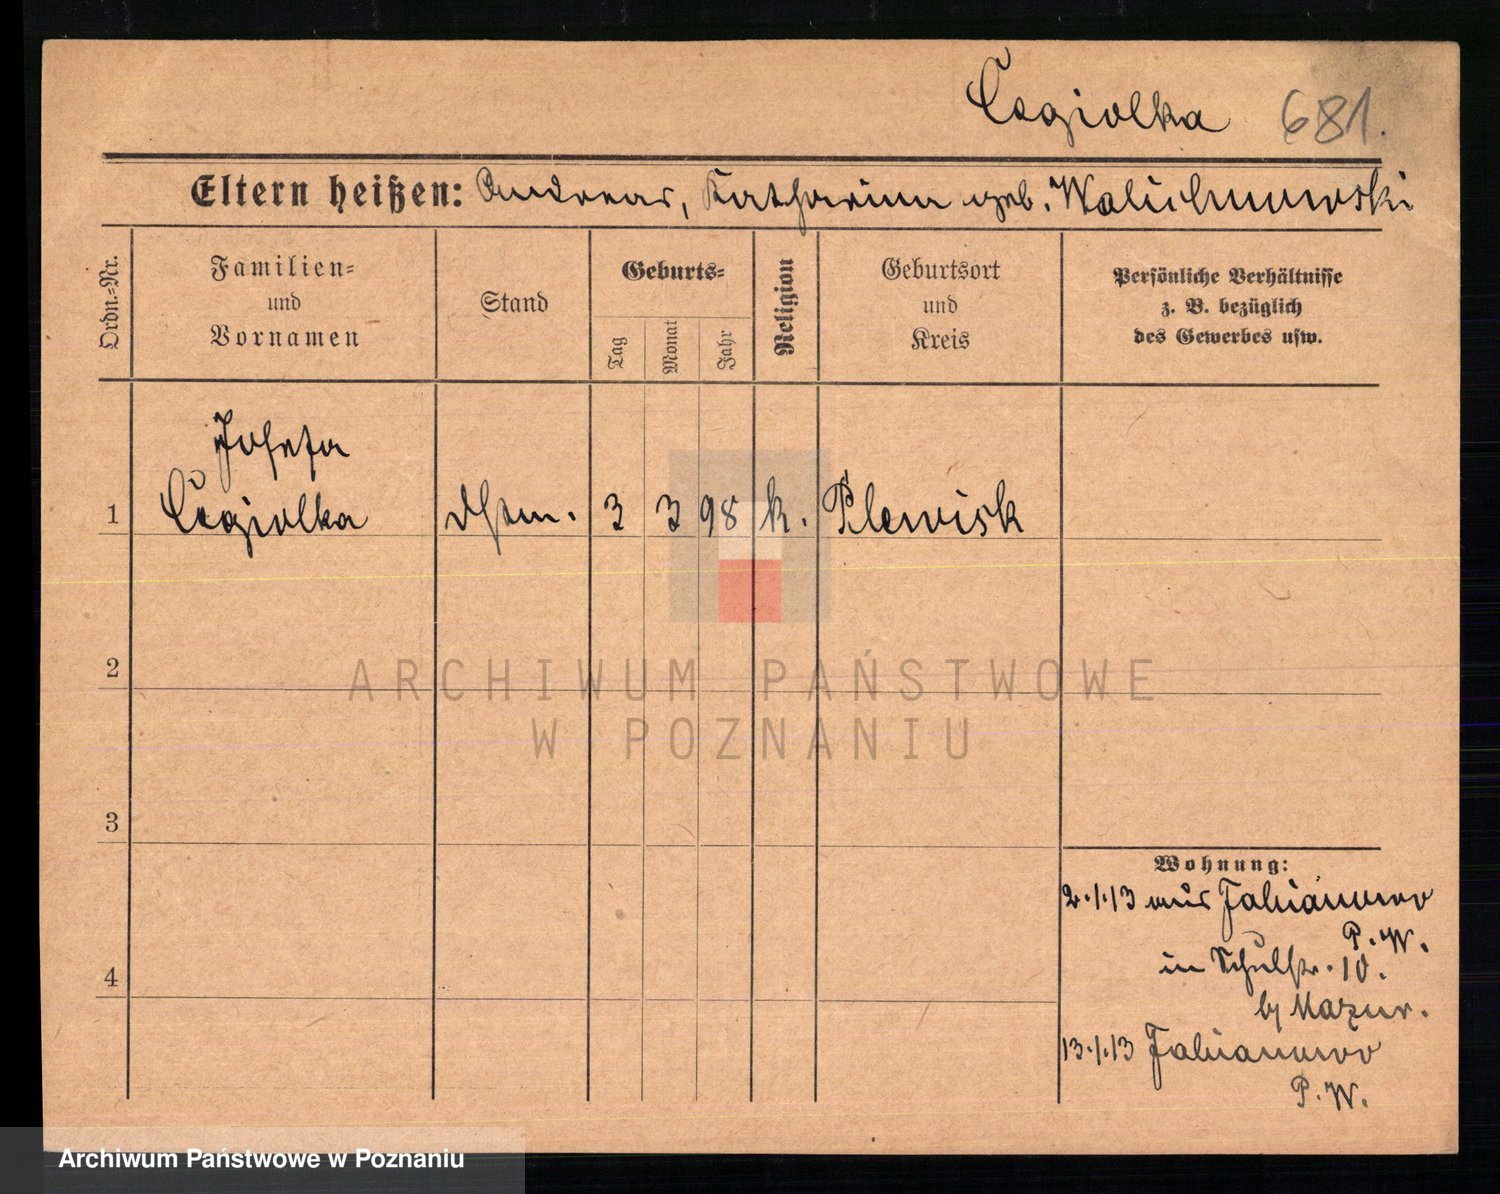 Cegiolka 681.
Eltern heißen: Andreas, Katharina geb. Walichnowski
Ordn.-Nr.
Familien-
und
Vornamen
Stand
Geburts-
Tag
Monat
Jahr
Religion
Geburtsort
und
Kreis
Persönliche Verhältnisse
z. B. bezüglich
des Gewerbes usw.
Josefa
1 Cegiolka 3 3 98 k. Plewisk
2
3
4
Wohnung:
2.1.13 aus Fabianowo
P. W.
in Schulstr. 10.
b/ Mazur.
13.1.13 Fabianowo
P. W.
ARCHIWUM PAŃSTWOWE
W POZNANIU
Archiwum Państwowe w Poznaniu